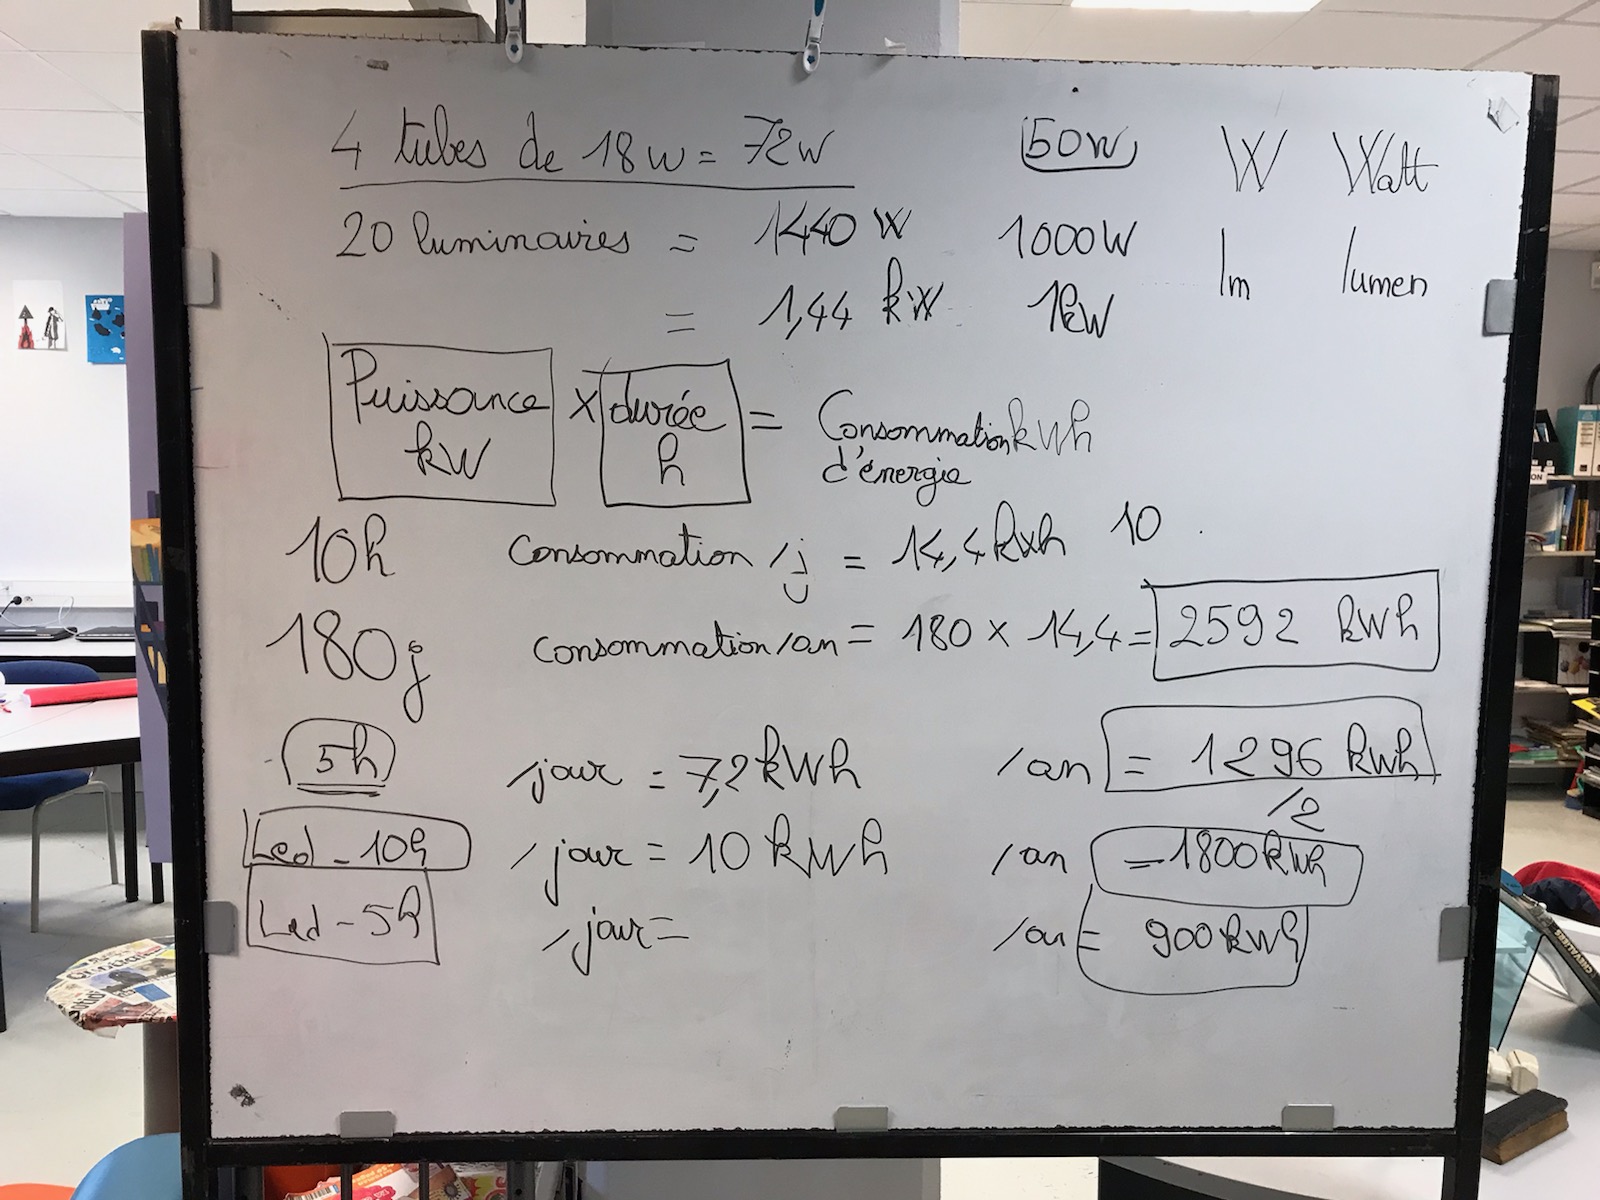 4 tubes de 18w = 72w 50w W Watt
20 luminaires = 1440 W 1000W lm lumen
= 1,44 kW 1kW
Puissance kW × durée h = Consommation d'énergie kWh
10h consommation /j = 14,4kWh 10
180j consommation/an = 180 × 14,4 = 2592 kWh
5h /jour = 7,2kWh /an = 1296 kWh
/2
Led - 10h /jour = 10 kWh /an = 1800kWh
Led - 5h /jour = /an = 900kWh
CHEVALIERS